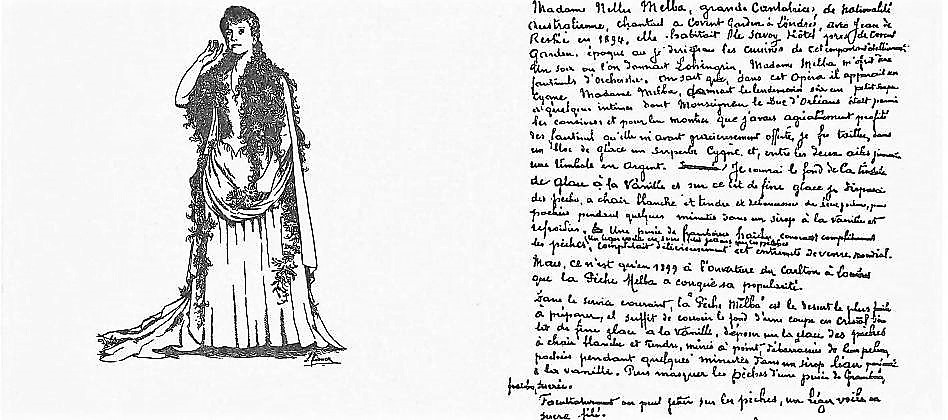 Madame Nellie Melba, grande Cantatrice, de nationalité
Australienne, chantait à Covent Garden à Londres, avec Jean de
Reské en 1894, elle habitait le Savoy Hôtel près de Covent
Garden, époque où je dirigeais les cuisines de cet
Un soir ou l'on donnait Lohengrin, Madame Melba m'offrit deux
fauteuils d'Orchestre. On sait que, dans cet Opéra il apparait un
Cygne. Madame Melba, donnait le lendemain soir un petit souper
à quelques intimes dont Monseigneur le Duc d'Orléans était parmi
les convives et pour lui montrer que j'avais agréablement profité
des fauteuils qu'elle m'avait gracieusement offerts, je fis tailler, dans
un bloc de glace un superbe Cygne et, entre les deux ailes
une timbale en argent. Je couvrai le fond de la timbale
de glace à la Vanille et sur ce lit de fine glace je disposai
des pêches, à chair blanche et tendre et débarrassées de
pochées pendant quelques minutes dans un sirop à la vanille et
refroidies. Une purée de framboises fraîches couvrant complètement
les pêches, complétait délicieusement cet entremets de
Mais, ce n'est qu'en 1899 à l'ouverture du Carlton à Londres
que la Pêche Melba a conquis sa popularité.
la "Pêche Melba" est le dessert le plus facile
à préparer, il suffit de couvrir le fond d'une coupe en cristal d'un
lit de fine glace à la Vanille, déposer sur la glace des pêches
à chair blanche et tendre, mûries à point débarrassées de leur peau,
pochées pendant quelques minutes dans un sirop léger
à la vanille. Puis masquer les pêches d'une purée de framboises
sucrée.
Facultativement on peut jeter sur les pêches, un léger voile en
sucre filé.